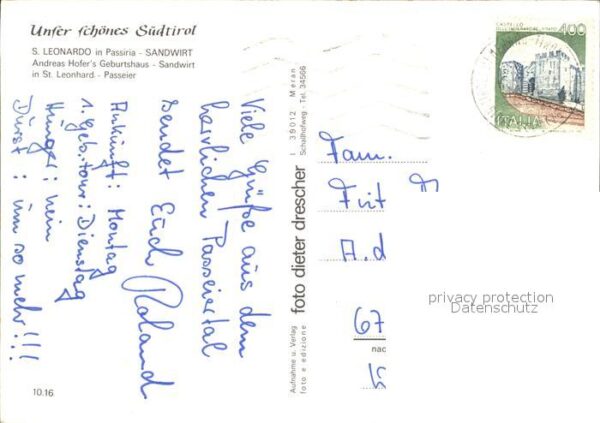 Unser schönes Südtirol
S. LEONARDO in Passiria - SANDWIRT
Andreas Hofer's Geburtshaus - Sandwirt
in St. Leonhard - Passeier
Viele Grüße aus dem
herrlichen Passeiertal
sendet Euch Roland
Ankunft: Montag
1. Geb.tour: Dienstag
Hunger: nein
Durst: um so mehr!!!
10.16
Aufnahme u. Verlag
foto e edizione
foto dieter drescher
I 39012 Meran
Schallhofweg - Tel. 34566
CASTELLO
400
ITALIA
Fam.
Firt
A.d
67
nac
privacy protection
Datenschutz